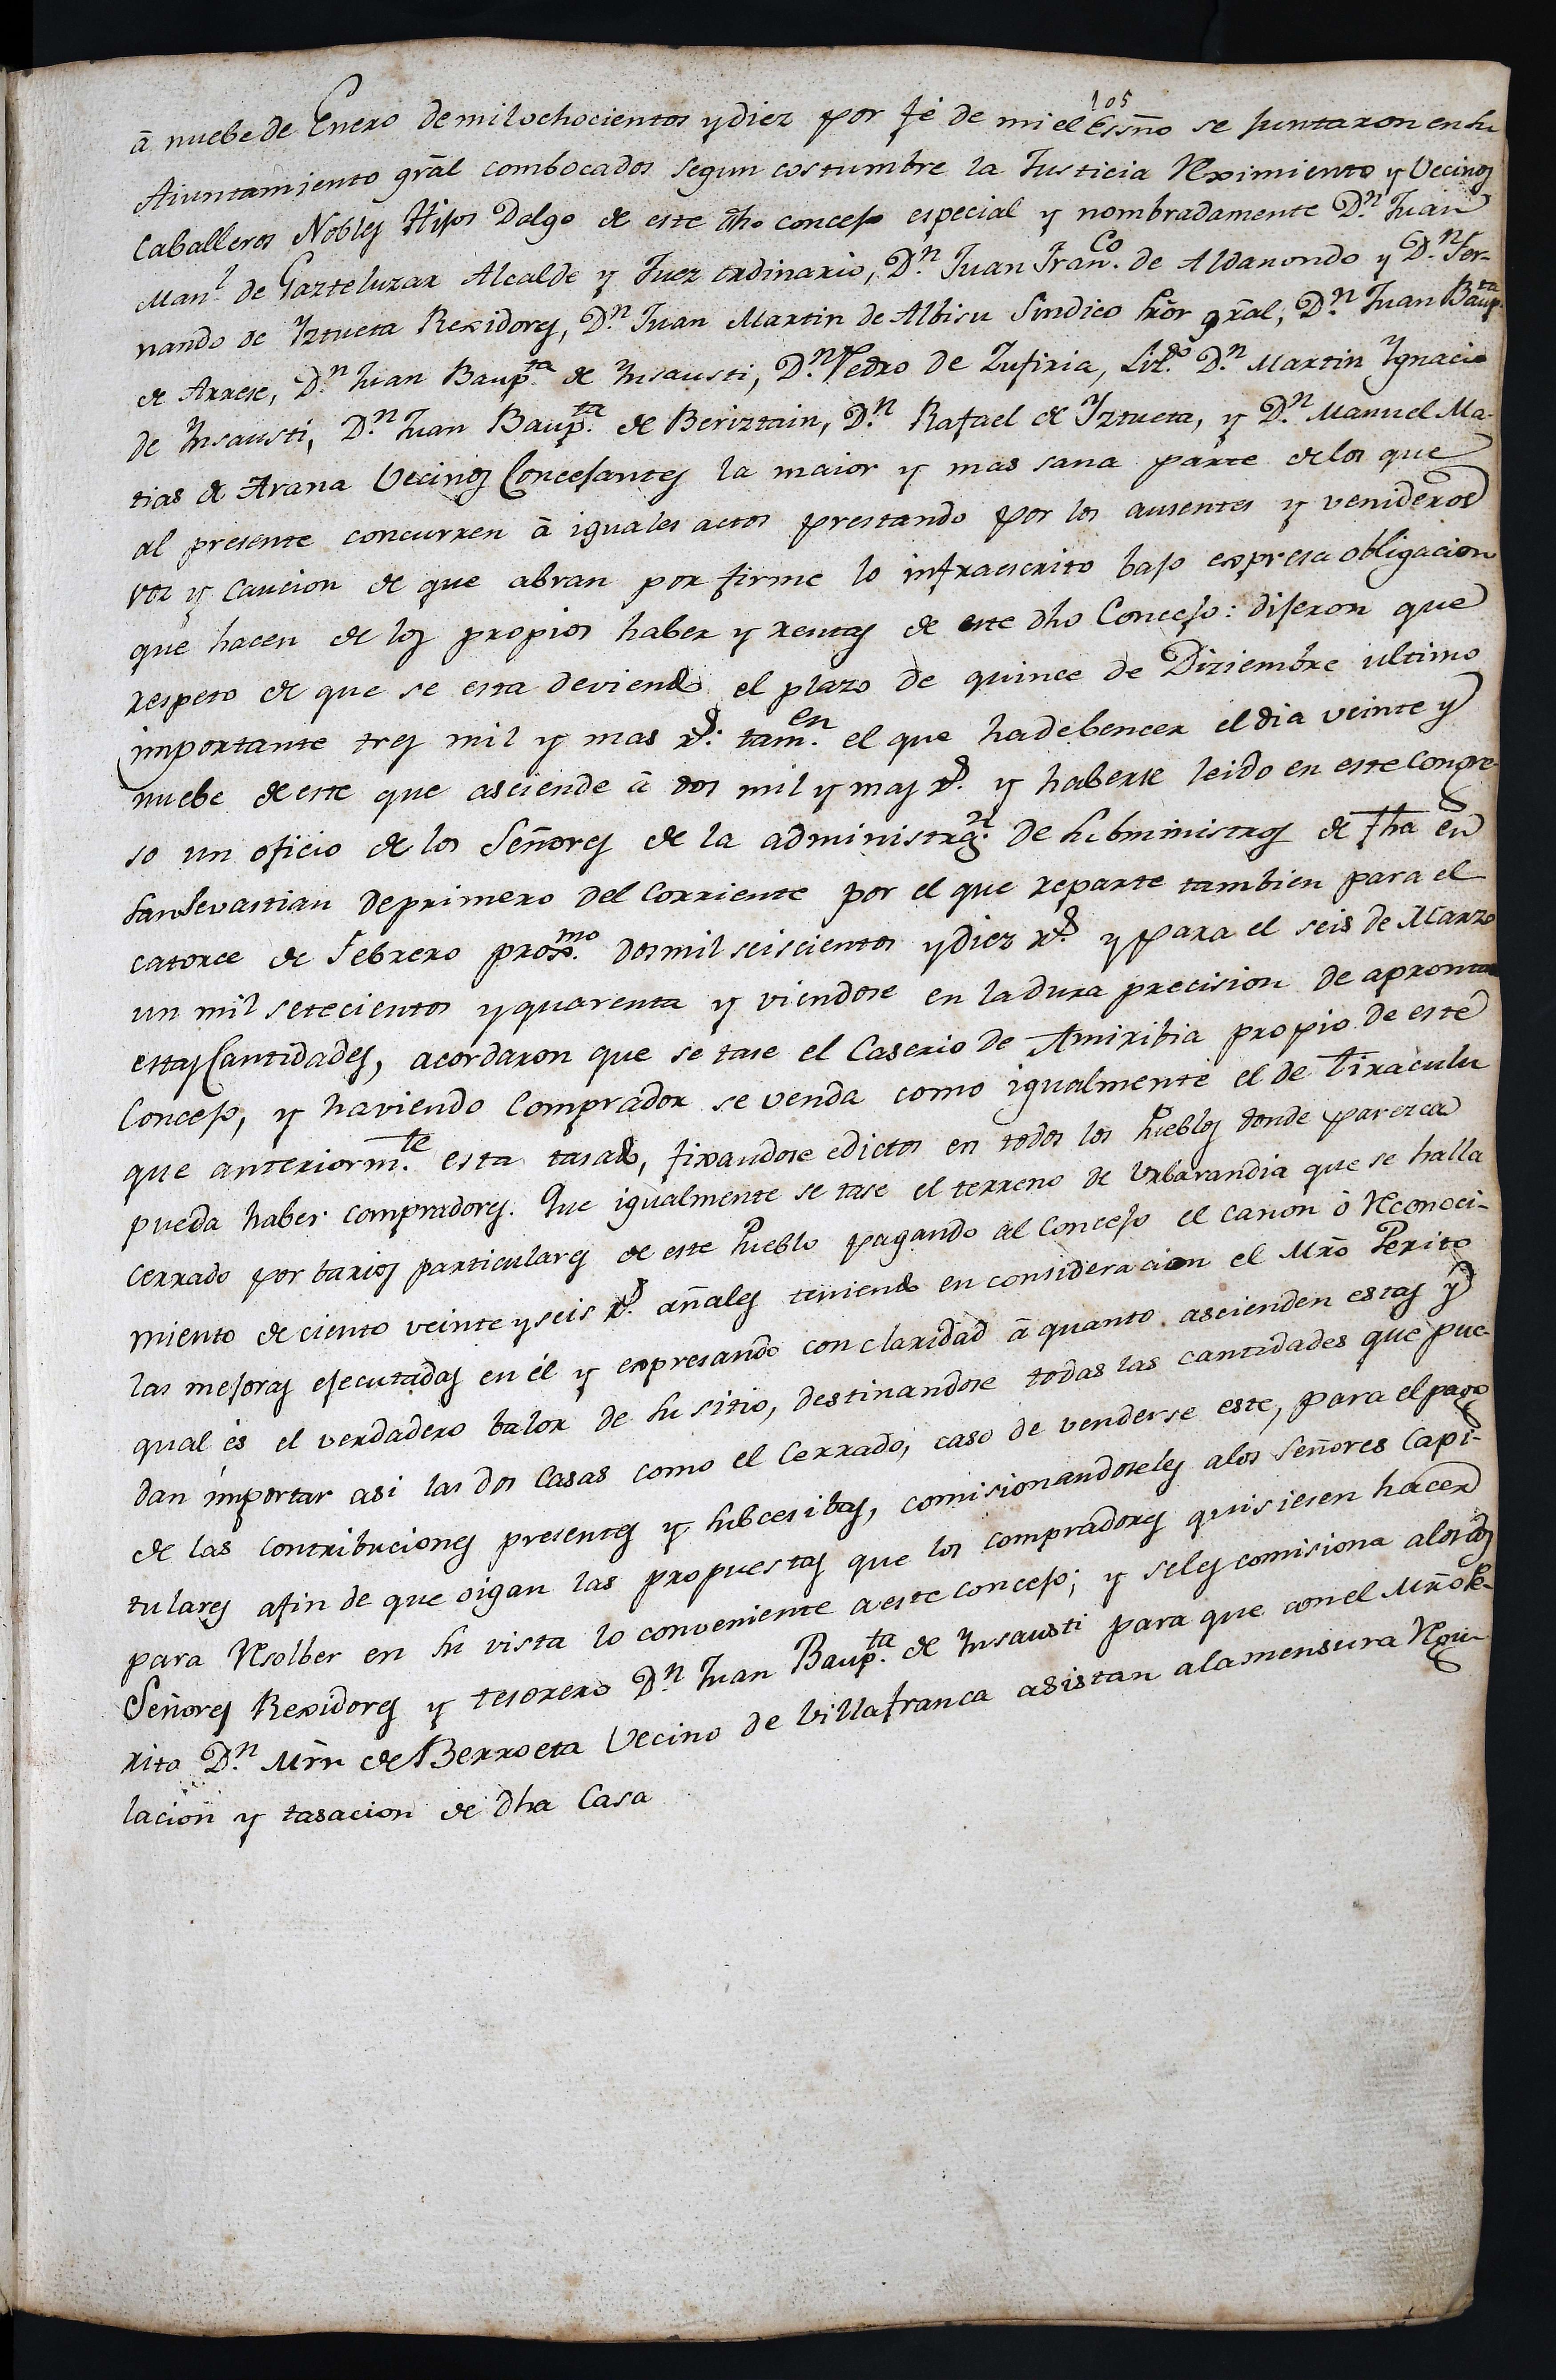 105
â nuebe de Enero demilochocientos ydiez por fé de mi el Essño se juntaron en su
Aiuntamiento grãl combocados segun costumbre la Justicia Reximiento y Vecinos
Caballeros Nobles Hijos Dalgo de este dho concejo especial y nombradamente D.n Juan
Man.l de Gazteluzar Alcalde y Juez ordinario, D.n Juan Fran.co de Aldamondo y D.n Fer-
nando de Yztueta Rexidores, D.n Juan Martin de Albisu Sindico Prõr grãl, D.n Juan Baup.ta
de Arrese, D.n Juan Baup.ta de Ynsausti, D.n Pedro de Zufiria, Liz.do D.n Martin Ygnacio
de Ynsausti, D.n Juan Baup.ta de Beriztain, D.n Rafael de Yztueta, y D.n Manuel Ma-
tias de Arana Vecinos Concejantes la maior y mas sana parte de los que
al presente concurren â iguales actos prestando por los ausentes y venideros
voz y caucion de que abran por firme lo infraescrito bajo expresa obligacion
que hacen de los propios haber y rentas de este dho Concejo: dijeron que
respeto de que se esta deviendo el plazo de quince de Diziembre ultimo
importante tres mil y mas r.s tam.en el que hadebencer el dia veinte y
nuebe de este que asciende â dos mil y mas r.s y haberse leido en este Congre-
so un oficio de los Señores de la administrã.n de subministros de fha en
San Sevastian deprimero del Corriente por el que reparte tambien para el
catorce de Febrero prox.mo dosmil seiscientos ydiez r.s y para el seis de Marzo
un mil setecientos yquarenta y viendose en ladura precision de aprontar
estas Cantidades, acordaron que se tase el Caserio de Amiribia propio de este
Concejo, y haviendo Comprador se venda como igualmente el de Tiraculu
que anteriorm.te esta tasado, fixandose edictos en todos los Pueblos donde parezca
pueda haber compradores. Que igualmente se tase el terreno de Urbarandia que se halla
cerrado por barios particulares de este Pueblo pagando al Concejo el canon ô Reconoci-
miento de ciento veinte y seis r.s añales teniendo en consideracion el Mrõ Perito
las mejoras ejecutadas en él y expresando con claridad â quanto ascienden estas y
qual és el verdadero balor de su sitio, destinandose todas las cantidades que pue-
dan importar asi las dos Casas como el Cerrado, caso de venderse este, para el pago
de las Contribuciones presentes y subcesibas, comisionandoseles alos Señores Capi-
tulares afin de que oigan las propuestas que los compradores quisiesen hacer
para Resolber en su vista lo conveniente a este concejo; y seles comisiona alos dos
Señores Rexidores y tesorero D.n Juan Baup.ta de Ynsausti para que con el Mrõ Pe-
rito D.n Mrñ de Berroeta Vecino de Villafranca asistan alamensura Regu-
lacion y tasacion de dha Casa